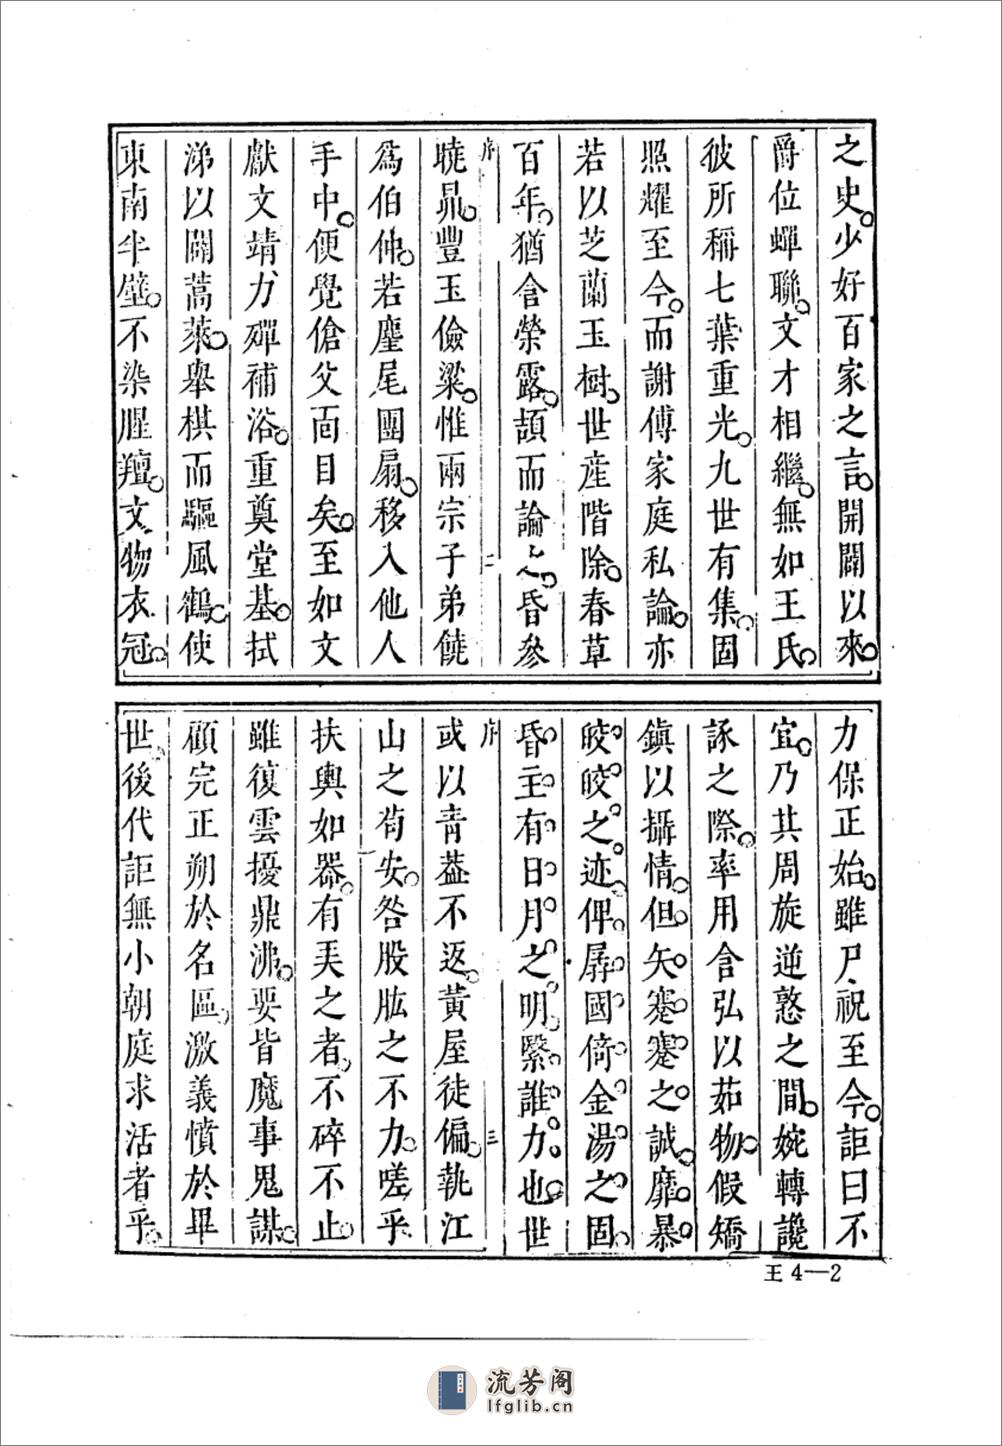 之史。少好百家之言。開闢以來。
爵位蟬聯。文才相繼。無如王氏。
彼所稱七葉重光。九世有集。固
照耀至今。而謝傅家庭私論。亦
若以芝蘭玉樹。世産階除。春草
百年。猶含榮露。頡而論之。昏參
序 二
曉昴。豐玉儉粱。惟兩宗子弟饒
爲伯仲。若麈尾團扇。移入他人
手中。便覺傖父面目矣。至如文
獻文靖力殫補浴。重奠堂基。拭
涕以闢蒿萊。舉棋而驅風鶴。使
東南半壁。不染腥羶。文物衣冠。
力保正始。雖尸祝至今。詎曰不
宜。乃其周旋逆憝之間。婉轉讒
諑之際。率用含弘以茹物。假矯
鎮以攝情。但矢蹇蹇之誠。靡暴
皎皎之迹。俾孱國倚金湯之固。
昏主有日月之明。緊誰力也。世
序 三
或以青葢不返。黄屋徒偏。執江
山之苟安。咎股肱之不力。嗟乎
扶輿如器。有美之者。不碎不止。
雖復雲擾鼎沸。要皆魔事鬼謀。
顧完正朔於名區。激義憤於畢
世。後代詎無小朝庭求活者乎。
王4—2
流芳阁
lfglib.cn